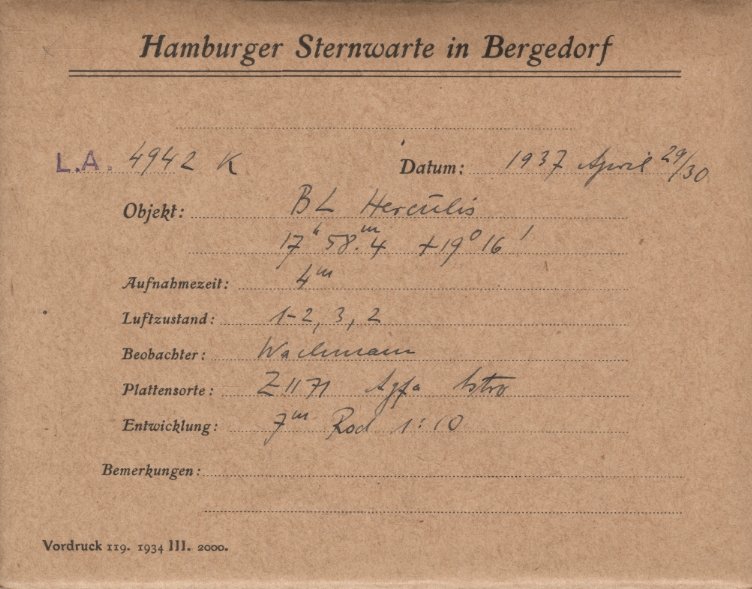 Hamburger Sternwarte in Bergedorf
L.A. 4942 K Datum: 1937 April 29/30
Objekt: BL Herculis
17h 58m.4 +19° 16'
Aufnahmezeit: 4m
Luftzustand: 1-2, 3, 2
Beobachter: Wachmann
Plattensorte: Z1171 Agfa Astro
Entwicklung: 7m Rod 1:10
Bemerkungen:
Vordruck 119. 1934 III. 2000.